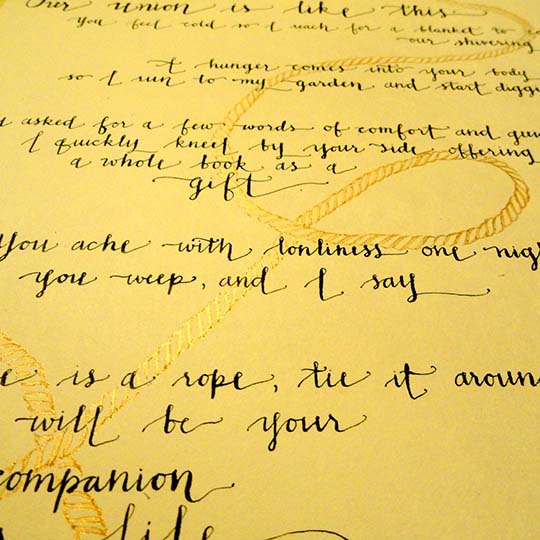 Our union is like this
you feel cold so I reach for a blanket to co
our shivering
A hunger comes into your body
so I run to my garden and start diggi
asked for a few words of comfort and gui
I quickly kneel by your side offering
a whole book as a
gift
You ache with lonliness one nigh
you weep, and I say
e is a rope, tie it aroun
will be your
companion
life